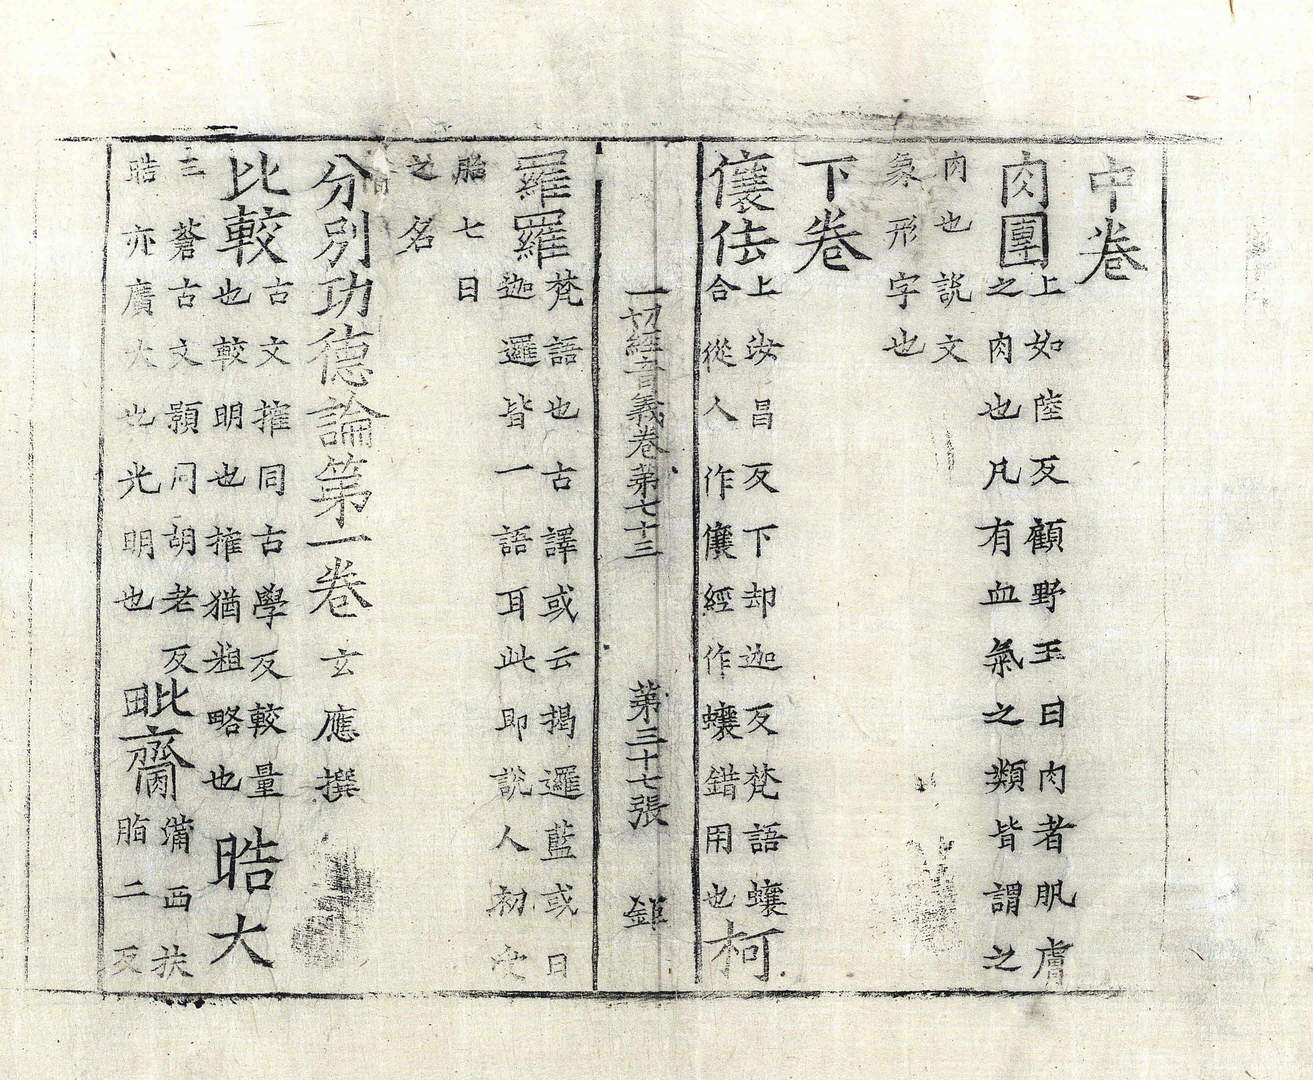 中卷
肉團上如陸反顧野王曰肉者肌膚
之肉也凡有血氣之類皆謂之
肉也說文
象形字也
下卷
儴佉上汝昌反下却迦反梵語蠰
合從人作儴經作蠰錯用也柯
一切經音義卷第七十三 第三十七張 鉅
羅羅梵語也古譯或云揭邏藍或曰
迦邏皆一語耳此即說人初受
胎七日
之名
分別功德論第一卷 玄應撰
比較古文搉同古學反較量
也較明也搉猶粗略也晧大
三蒼古文顥同胡老反
晧亦廣大也光明也毗臍蒲西扶
脂二反